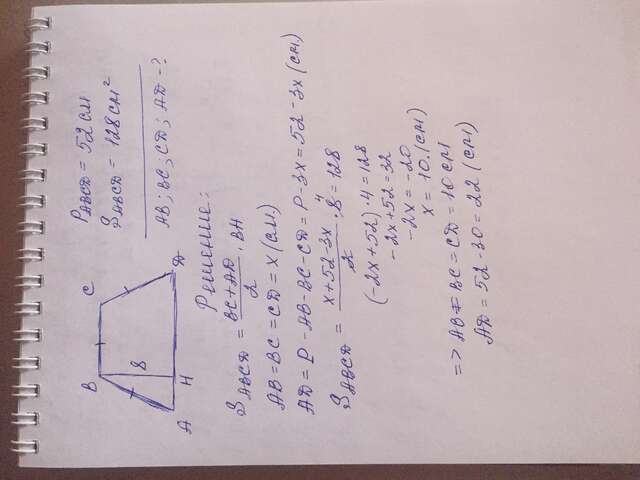 B C
8
A H D
P ABCD = 52 см
S ABCD = 128 см²
AB; BC; CD; AD - ?
Решение:
S ABCD = (BC+AD)/2 · BH
AB = BC = CD = x (см)
AD = P - AB - BC - CD = P - 3x = 52 - 3x (см)
S ABCD = (x+52-3x)/2 · 8 4 = 128
(-2x+52) · 4 = 128
-2x+52 = 32
-2x = -20
x = 10. (см)
=> AB = BC = CD = 10 см
AD = 52 - 30 = 22 (см)